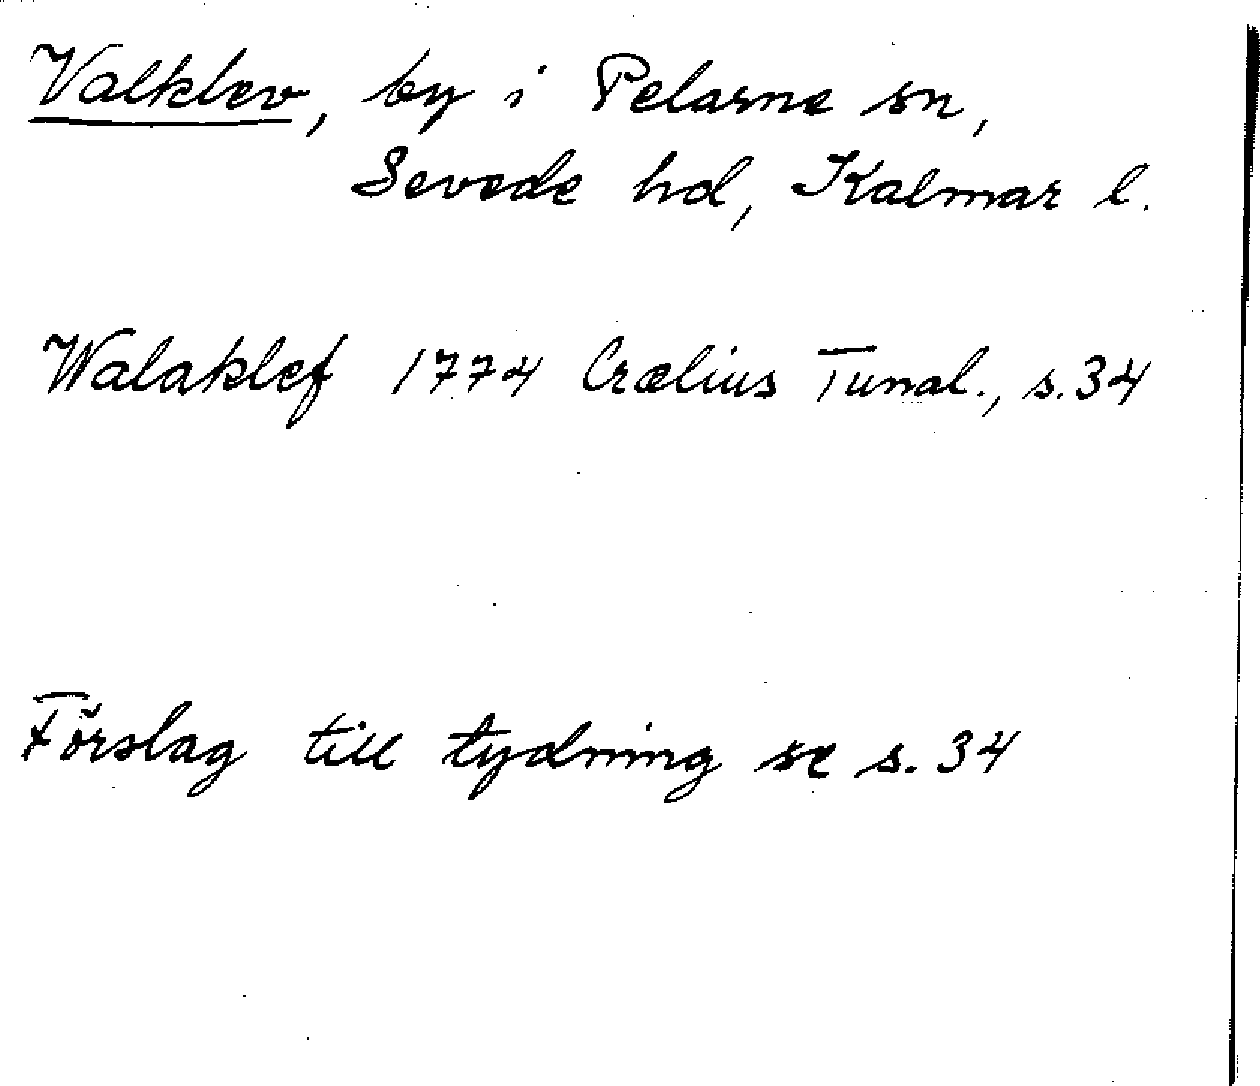 Valklev, by i Pelarne sn,
Sevede hd, Kalmar l.
Walaklef 1774 Crælius Tunal., s. 34
Förslag till tydning se s. 34